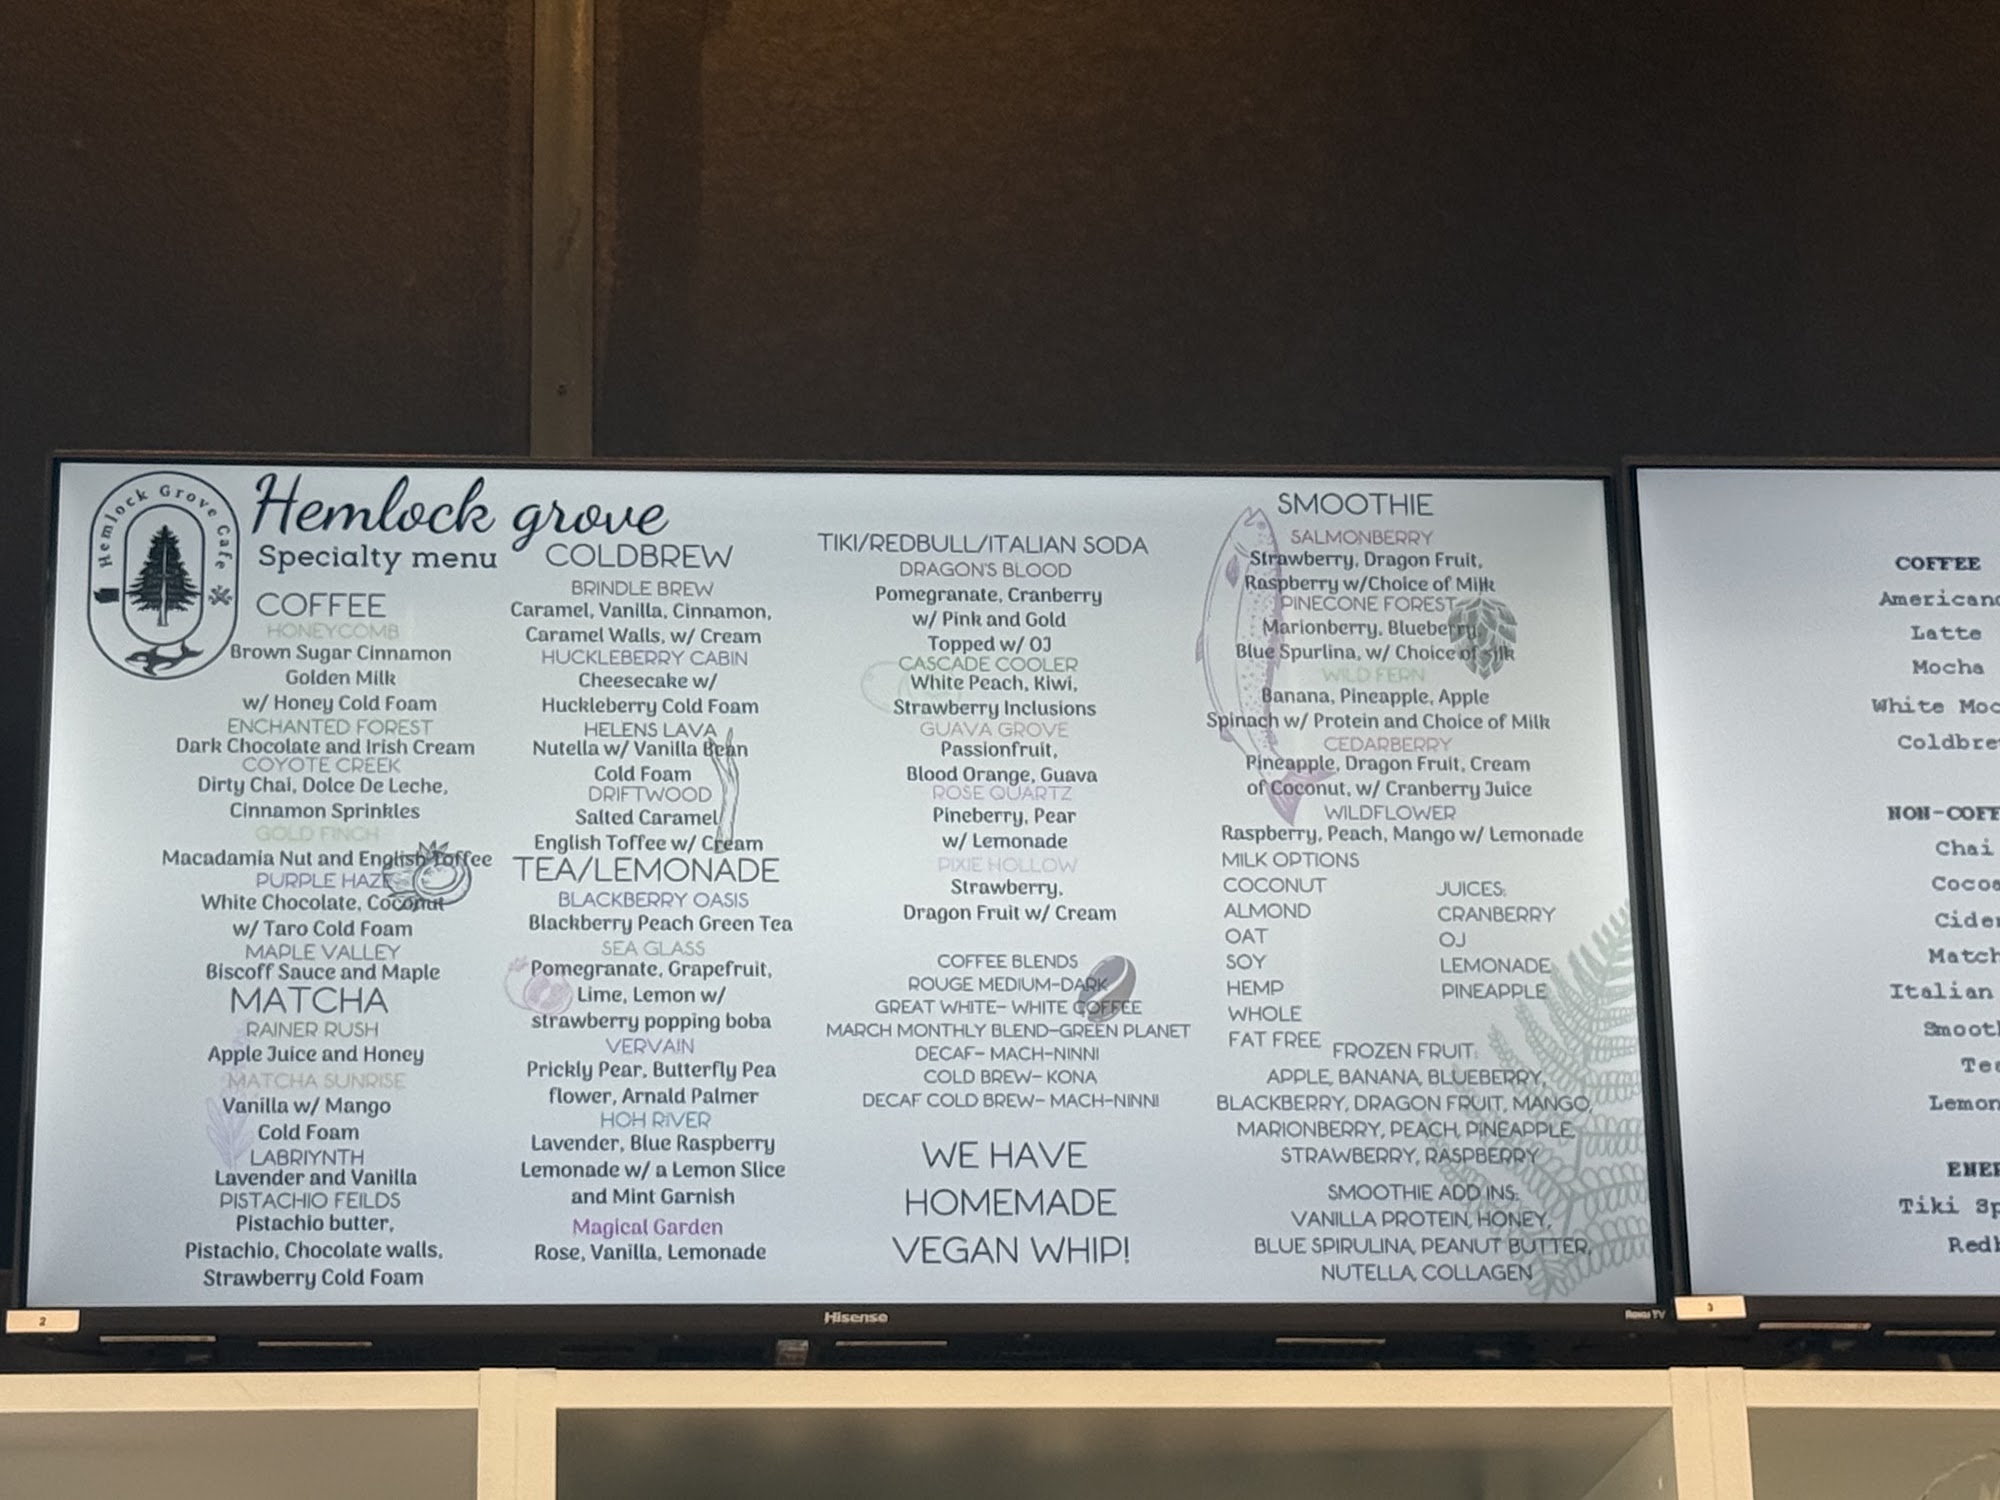 Hemlock Grove Cafe
Hemlock grove
Specialty menu
COFFEE
HONEYCOMB
Brown Sugar Cinnamon
Golden Milk
w/ Honey Cold Foam
ENCHANTED FOREST
Dark Chocolate and Irish Cream
COYOTE CREEK
Dirty Chai, Dolce De Leche,
Cinnamon Sprinkles
GOLD FINCH
Macadamia Nut and English Toffee
PURPLE HAZE
White Chocolate, Coconut
w/ Taro Cold Foam
MAPLE VALLEY
Biscoff Sauce and Maple
MATCHA
RAINER RUSH
Apple Juice and Honey
MATCHA SUNRISE
Vanilla w/ Mango
Cold Foam
LABRIYNTH
Lavender and Vanilla
PISTACHIO FEILDS
Pistachio butter,
Pistachio, Chocolate walls,
Strawberry Cold Foam
COLDBREW
BRINDLE BREW
Caramel, Vanilla, Cinnamon,
Caramel Walls, w/ Cream
HUCKLEBERRY CABIN
Cheesecake w/
Huckleberry Cold Foam
HELENS LAVA
Nutella w/ Vanilla Bean
Cold Foam
DRIFTWOOD
Salted Caramel
English Toffee w/ Cream
TEA/LEMONADE
BLACKBERRY OASIS
Blackberry Peach Green Tea
SEA GLASS
Pomegranate, Grapefruit,
Lime, Lemon w/
strawberry popping boba
VERVAIN
Prickly Pear, Butterfly Pea
flower, Arnald Palmer
HOH RIVER
Lavender, Blue Raspberry
Lemonade w/ a Lemon Slice
and Mint Garnish
Magical Garden
Rose, Vanilla, Lemonade
TIKI/REDBULL/ITALIAN SODA
DRAGON'S BLOOD
Pomegranate, Cranberry
w/ Pink and Gold
Topped w/ OJ
CASCADE COOLER
White Peach, Kiwi,
Strawberry Inclusions
GUAVA GROVE
Passionfruit,
Blood Orange, Guava
ROSE QUARTZ
Pineberry, Pear
w/ Lemonade
PIXIE HOLLOW
Strawberry,
Dragon Fruit w/ Cream
COFFEE BLENDS
ROUGE MEDIUM-DARK
GREAT WHITE- WHITE COFFEE
MARCH MONTHLY BLEND-GREEN PLANET
DECAF- MACH-NINNI
COLD BREW- KONA
DECAF COLD BREW- MACH-NINNI
WE HAVE
HOMEMADE
VEGAN WHIP!
SMOOTHIE
SALMONBERRY
Strawberry, Dragon Fruit,
Raspberry w/Choice of Milk
PINECONE FOREST
Marionberry, Blueberry,
Blue Spurlina, w/ Choice of Silk
WILD FERN
Banana, Pineapple, Apple
Spinach w/ Protein and Choice of Milk
CEDARBERRY
Pineapple, Dragon Fruit, Cream
of Coconut, w/ Cranberry Juice
WILDFLOWER
Raspberry, Peach, Mango w/ Lemonade
MILK OPTIONS
COCONUT
ALMOND
OAT
SOY
HEMP
WHOLE
FAT FREE
JUICES:
CRANBERRY
OJ
LEMONADE
PINEAPPLE
FROZEN FRUIT:
APPLE, BANANA, BLUEBERRY,
BLACKBERRY, DRAGON FRUIT, MANGO,
MARIONBERRY, PEACH, PINEAPPLE,
STRAWBERRY, RASPBERRY
SMOOTHIE ADD INS:
VANILLA PROTEIN, HONEY,
BLUE SPIRULINA, PEANUT BUTTER,
NUTELLA, COLLAGEN
COFFEE
Americano
Latte
Mocha
White Moc
Coldbre
NON-COFF
Chai
Cocoa
Cider
Match
Italian
Smooth
Tea
Lemon
ENER
Tiki Sp
Redb
2
Hisense
Roku TV
3